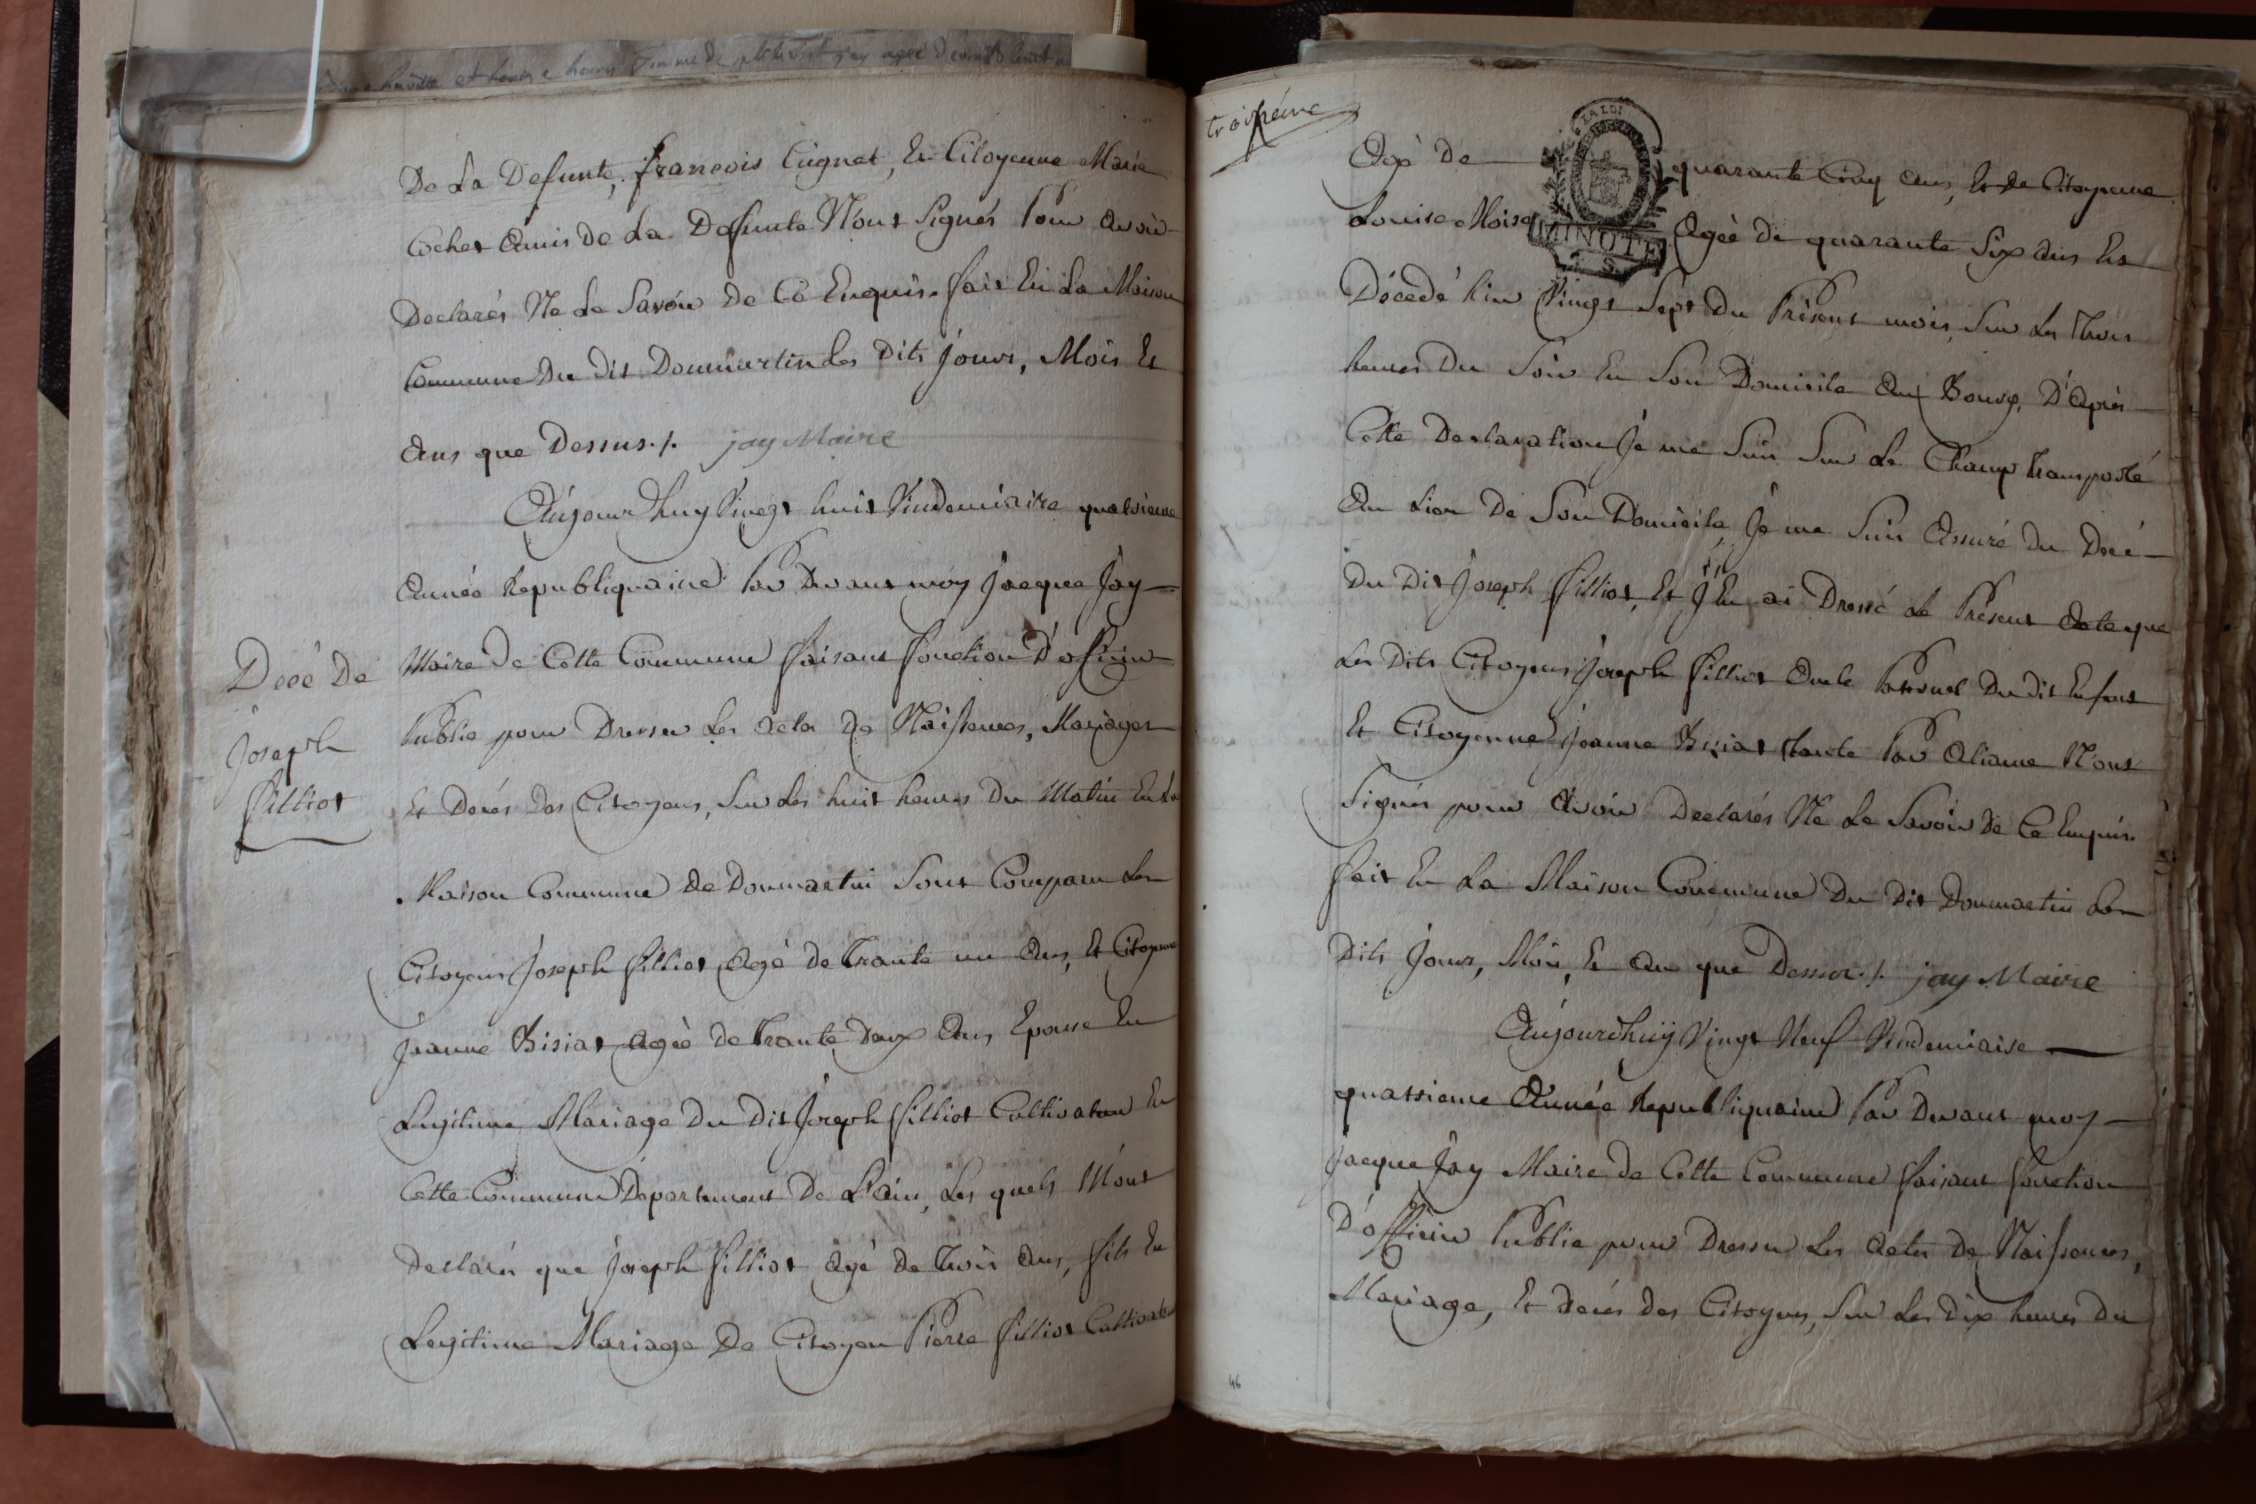 De La Defunte, francois Cugnet, Et Citoyenne Marie
Cochet Amis de La Defunte Nont Signés Pour avoir
Declarés Ne Le Savoir De Ce Enquis. fait En La Maison
Commune Du dit Dommartin Les Dits jours, Mois Et
Ans que Dessus./. jay Maire
Aujourdhuy Vingt huit Vindemiaire quatrieme
Année Republiquaine Par Devant moy Jacque Jay
Decé De
Joseph
filliot
Maire de Cette Commune faisant fonction D'officier
Public pour Dresser Les acte De Naissances, Mariages
Et Decés Des Citoyens, Sur Les huit heures Du Matin En La
Maison Commune de Dommartin Sont Comparu Les
Citoyens Joseph filliot Agé de Trante un Ans, Et Citoyenne
Jeanne Bisiat Agée de Trante Deux Ans Epouse En
Legitime Mariage Du Dit Joseph filliot Cultivateur En
Cette Commune Département De L'ain, Les quels M'ont
Declarés que Joseph filliot Agé de Trois Ans, fils En
Legitime Mariage De Citoyen Pierre filliot Cultivateur
troisieme
LA LOI
MINUTE
Agé de quarante Cinq ans, Et de Citoyenne
Louise Moisa Agée de quarante Six ans Est
Décedé hier Vingt Sept Du Présent mois, Sur Les Trois
heures Du Soir En Son Domicile Au Bourg, D'Après
Cette Declaration Je me Suis Sur Le Champ transporté
Au Lieu De Son Domicile, Je me Suis Assuré du Decé
Du Dit Joseph filliot, Et J'En ai Dressé Le Présent Acte que
Les Dits Citoyens Joseph filliot Oncle Paternel Du dit Enfant
Et Citoyenne Jeanne Bisiat tante Par Aliance Nont
Signés pour Avoir Declarés Ne Le Savoir de Ce Enquis.
fait En La Maison Commune Du Dit Dommartin Les
Dits Jours, Mois, Et An que Dessus./. jay Maire
Aujourdhuy Vingt Neuf Vindemiaire
quatrieme Année Republiquaine Par Devant moy
Jacque Jay Maire de Cette Commune faisant fonction
D'officier Public pour Dresser Les Actes De Naissances,
Mariage, Et Decés Des Citoyens, Sur Les Dix heures Du
46